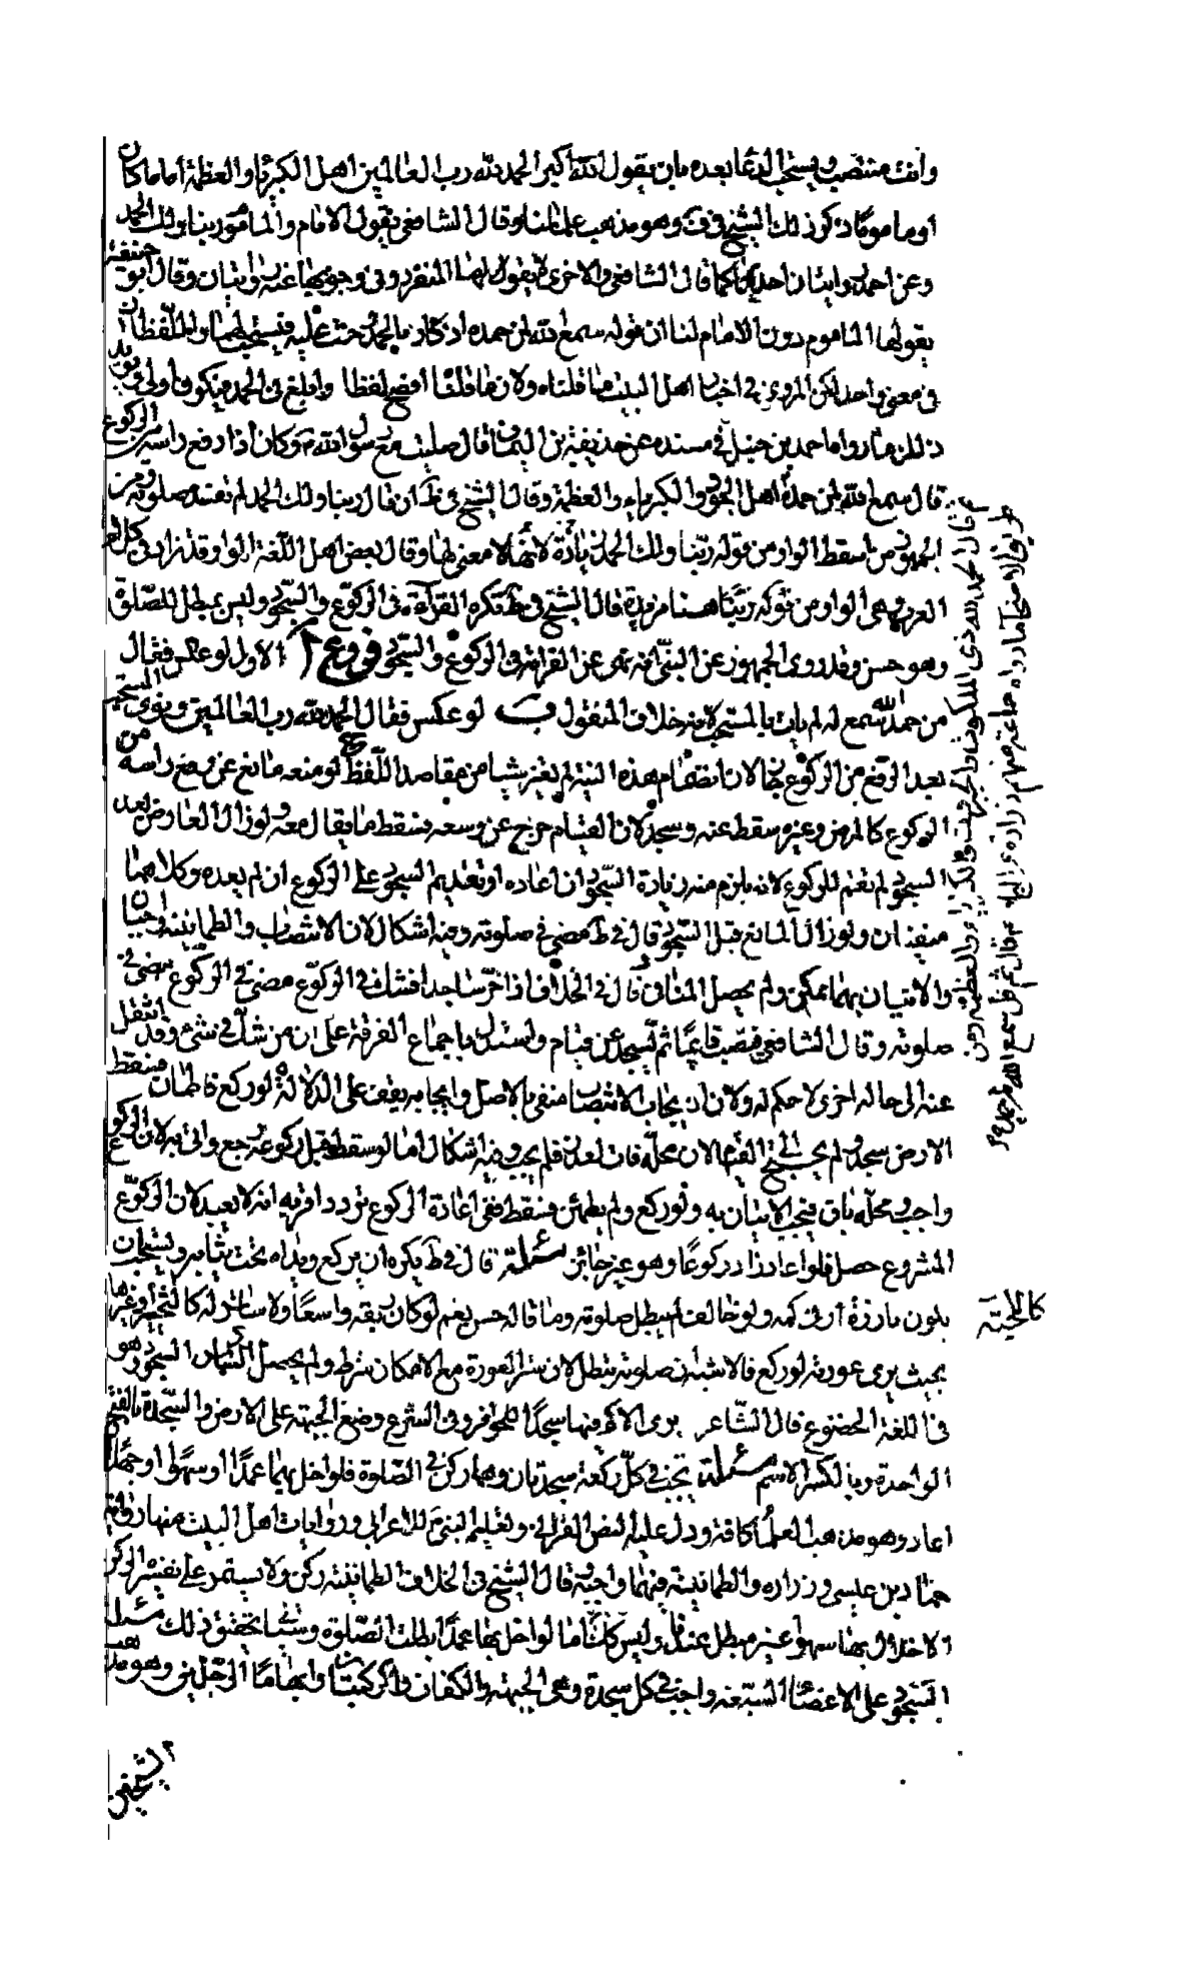 وانت منتصب ويستحب الدعا بعده بان يقول الله اكبر الحمد لله رب العالمين اهل الكبرياء والعظمة اماما كان
او ماموما ذكر ذلك الشيخ في وهو مذهب علمائنا وقال الشافعي يقول الامام والماموم ربنا ولك الحمد
وعن احمد روايتان احديهما كما قال الشافعي والاخرى لا يقولها المنفرد وفي وجوبها عنه روايتان وقال ابو حنيفة
يقولها الماموم دون الامام لنا ان قوله سمع الله لمن حمده اذكار بالحمد وحث عليه فيستحب لهما واللفظان
في معنى واحد لكن المروي في اخبار اهل البيت ما قلناه ولان ما قلناه افصح لفظا وابلغ في الحمد فيكون اولى ويويد
ذلك ما رواه احمد بن حنبل في مسنده عن حذيفة بن اليمان قال صليت مع رسول الله ص وكان اذا رفع راسه من الركوع
قال سمع الله لمن حمده اهل الجود والكبرياء والعظمة وقال الشيخ في ط ان قال ربنا ولك الحمد لم تفسد صلوته ومن
الجمهور من اسقط الواو من قوله ربنا ولك الحمد لانها زيادة لا معنى لها وقال بعض اهل اللغة الواو قد تزاد في كلام
العرب وهي الواو من قوله ربنا هنا مزيدة قال الشيخ في ط تكره القراءة في الركوع والسجود وليس بمبطل للصلوة
وهو حسن وقد روى الجمهور عن النبي انه نهى عن القراءة في الركوع والسجود فروع آ الاول لو عكس فقال
من حمد الله سمع له لم يات بالمستحب لانه خلاف المنقول ب لو عكس فقال الحمد لله رب العالمين ونوى المستحب
بعد الرفع من الركوع جاز لان انضمام هذه النية لم يغير شيا من مقاصد اللفظ ج لو منعه مانع عن رفع راسه من
الركوع كالمرض وغيره سقط عنه وسجد لان القيام خرج عن وسعه فسقط ما يقال معه ولو زال العارض بعد
السجود لم يقم للركوع لانه يلزم منه زيادة السجود ان اعاده او تقديم السجود على الركوع ان لم يعده وكلاهما
منفيان ولو زال المانع قبل السجود قال في ط مضى في صلوته وفيه اشكال لان الانتصاب والطمانينة واجبان
والاتيان بهما ممكن ولم يحصل المنافي د قال في الخلاف اذا خر ساجدا فشك في الركوع مضى في الركوع مضى في
صلوته وقال الشافعي ينتصب قائما ثم يسجد عن قيام واستدل باجماع الفرقة على ان من شك في شيء وقد انتقل
عنه الى حالة اخرى لا حكم له ولان ايجاب الانتصاب منفي بالاصل وايجابه يقف على الدلالة ه لو ركع فاطمان فسقط
الارض سجد ولم يحتج القيام لان محله فات لعذر فلم يجب وفيه اشكال اما لو سقط قبل ركوعه رجع واتى به لان الركوع
واجب ومحله باق فيجب الاتيان به ولو ركع ولم يطمئن فسقط ففي اعادة الركوع تردد اقربه انه لا يعيد لان الركوع
المشروع حصل فلو اعاد زاد ركوعا وهو غير جائز مسئلة قال في ط يكره ان يركع ويداه تحت ثيابه ويستحب ان
يكون بارزة او في كمه ولو خالف لم يبطل صلوته وما قاله حسن نعم لو كان ريقه واسعا ولا ساتر له كاللحية او غيرها
بحيث يرى عورته لو ركع فالاشبه ان صلوته تبطل لان ستر العورة مع الامكان شرط ولم يحصل السجود هو
في اللغة الخضوع قال الشاعر يرى الاكم فيها سجدا للحوافر وفي الشرع وضع الجبهة على الارض والسجدة بالفتح
الواحدة وبالكسر الاسم مسئلة تجب في كل ركعة سجدتان وهما ركن في الصلوة فلو اخل بهما عمدا او سهوا او جهلا
اعاد وهو مذهب العلماء كافة ودل عليه النص القراني وتعليم النبي ص للاعرابي وروايات اهل البيت منها رواية
حماد بن عيسى وزرارة والطمانينة فيهما واجبة قال الشيخ في الخلاف الطمانينة ركن ولا يستمر على تفسير الركن
الاخلال بها سهوا غير مبطل عندنا وليس ركنا اما لو اخل بها عمدا بطلت الصلوة وسياتي تحقيق ذلك مسئلة
السجود على الاعضاء السبعة واجب في كل سجدة وهي الجبهة والكفان والركبتان وابهاما الرجلين وهو مذهب
الشيخين
قال الحمد لله ذي الملكوت والجبروت والكبرياء والعظمة ومن
طريق الاصحاب ما رواه جماعة منهم زرارة عن ابي قال ثم قل سمع الله لمن حمده
كاللحية